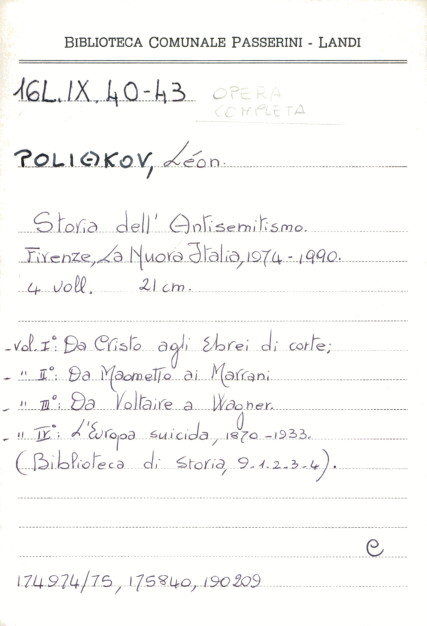 BIBLIOTECA COMUNALE PASSERINI - LANDI
16L.IX.40-43 OPERA
COMPLETA
POLIAKOV, Léon.
Storia dell' Antisemitismo.
Firenze, La Nuova Italia, 1974-1990.
4 voll. 21 cm.
- vol. I°: Da Cristo agli Ebrei di corte;
- " II°: Da Maometto ai Marrani
- " III°: Da Voltaire a Wagner.
- " IV°: L'Europa suicida, 1870-1933.
(Biblioteca di Storia, 9-1.2-3-4).
e
174974/75, 175840, 190209